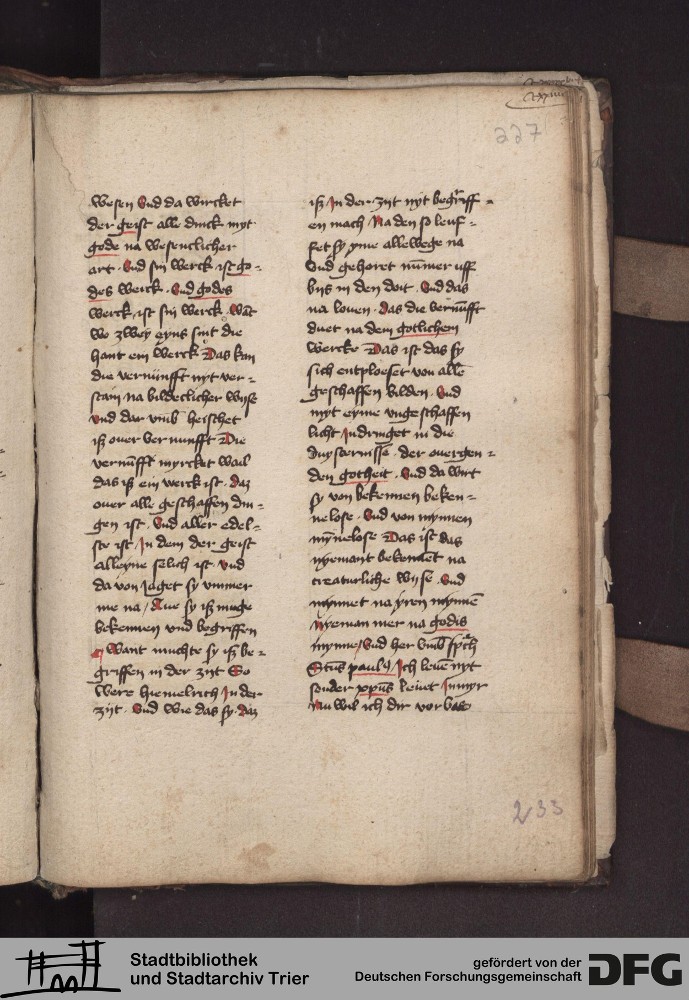 227
wesen Vnd da wircket
der geist alle dinck myt
gode na wesenclicher
art · Vnd sin werck · ist go=
des werck · Vnd godes
werck · ist sin werck · Wāt
wo zwey eyns sint die
hant ein werck Das kan
die vernunfft nyt ver=
stain na bildeclicher wijse
Vnd dar vmb heischet
iß ouer vernunfft Die
vernūfft myrcket wail
das iß ein werck ist · daz
ouer alle geschaffen din=
gen ist · Vnd aller edel=
ste ist / In dem der geist
alleyne selich ist · Vnd
da von Jaget sy vmmer
me na / Aue sy iß muge
bekennen vnd begriffen
Want muchte sy iß be=
griffen in der zijt So
were hiemelrich In der
zijt · Vnd wie das sy · daz
iß / In der zijt nyt begriff=
en mach / Na den so leuf=
fet sy yme allewege na
Vnd gehoret nūmer uff
biß in den doit · Vnd das
na louen · das die vernūfft
duet na dem gotlichem
wercke Das ist das sy
sich entploeset von allē
geschaffen bilden · Vnd
myt eyme vngeschaffen
licht / Indringet in die
duysternisse · der ouergen=
den gotheit · Vnd da wirt
sy von bekennen beken=
nelose · Vnd von mynnen
mȳnelose Das ist das
nyemant bekennet na
creaturliche wijse · Vnd
mynnet na yren mynnē
Nyeman mer na godis
mynne / Vnd her vmb sprch
Sctus paulꝰ / Ich leue nyt
sonder xp̄us leuet / In myr
Nu wil ich dir vorbas
233
Stadtbibliothek
und Stadtarchiv Trier
gefördert von der
Deutschen Forschungsgemeinschaft
DFG